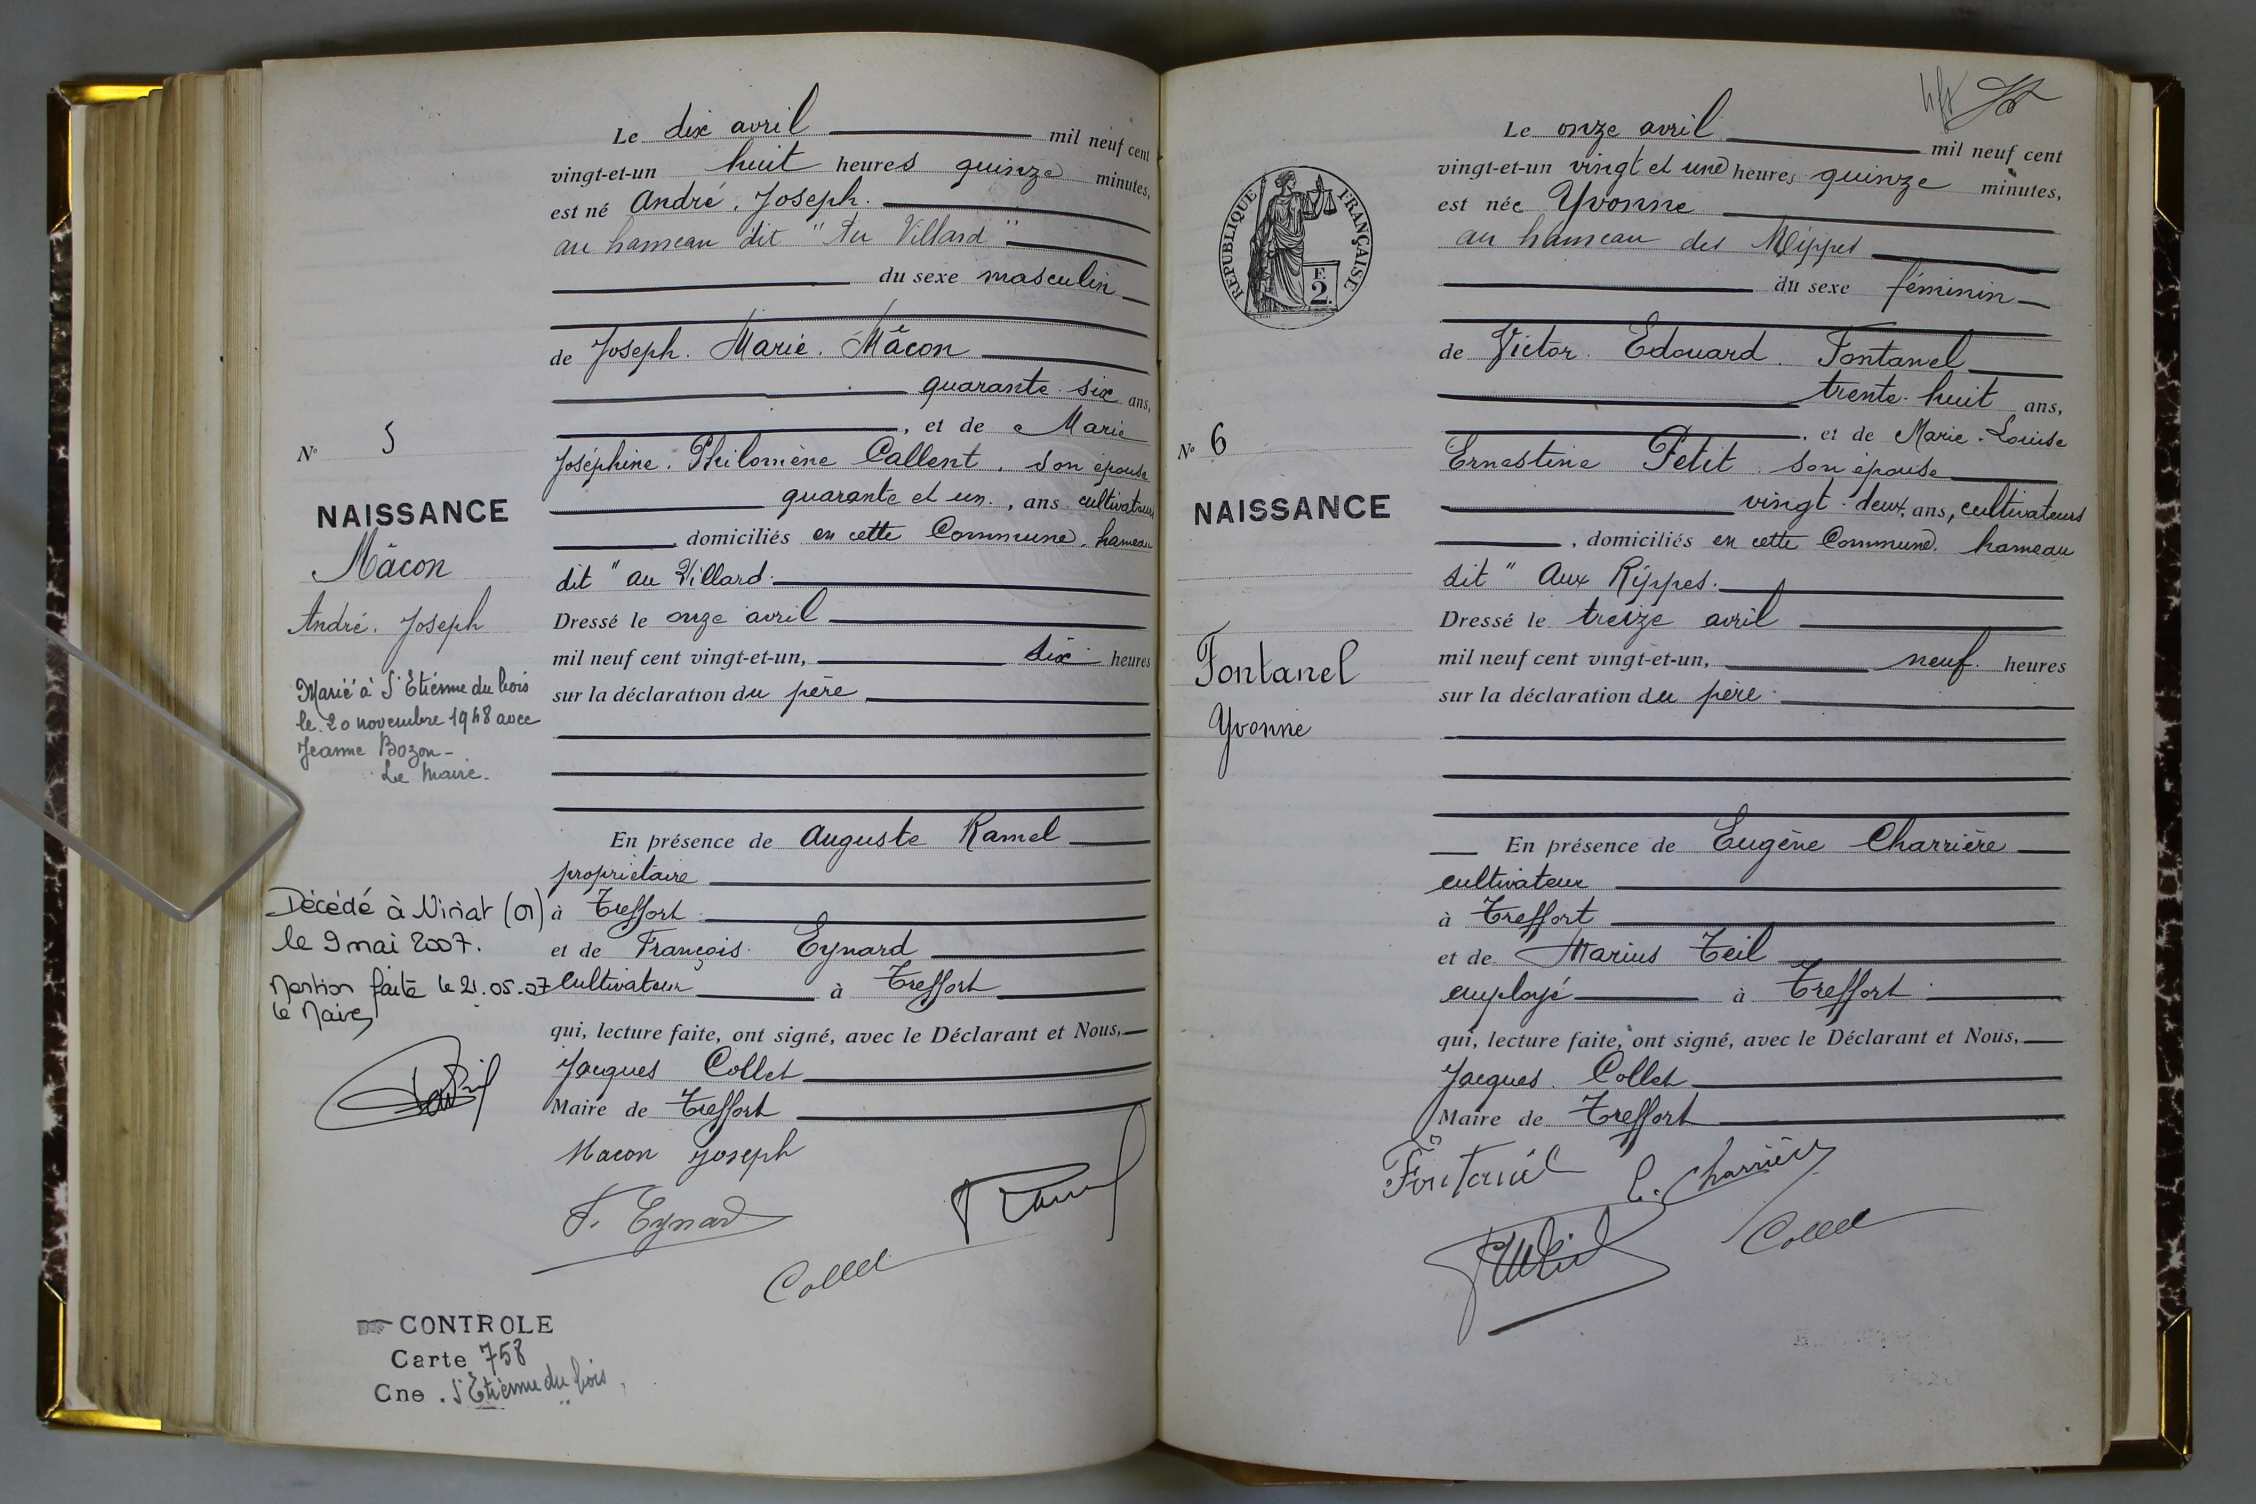 Le dix avril mil neuf cent
vingt-et-un huit heures quinze minutes,
est né André. Joseph.
au hameau dit "Au Villard"
du sexe masculin
de Joseph. Marie. Mâcon
quarante six ans,
, et de Marie
Joséphine. Philomène Callent. son épouse
quarante et un., ans cultivateurs
domiciliés en cette Commune. hameau
dit "au Villard.
Dressé le onze avril
mil neuf cent vingt-et-un, dix heures
sur la déclaration du père
En présence de Auguste Ramel
propriétaire
à Treffort
et de François Eynard
cultivateur à Treffort
qui, lecture faite, ont signé, avec le Déclarant et Nous,
Jacques Collet
Maire de Treffort
Macon Joseph
F. Eynard
Ramel
Collet
N° 5
NAISSANCE
Mâcon
André. Joseph
Marié à St Etienne du bois
le 20 novembre 1948 avec
Jeanne Bozon -
Le Maire.
Décédé à Viriat (01)
le 9 mai 2007.
Mention faite le 21.05.07
le Maire,
CONTROLE
Carte 758
Cne . St Etienne du bois
Le onze avril mil neuf cent
vingt-et-un vingt et une heures quinze minutes,
est née Yvonne
au hameau des Rippes
du sexe féminin
de Victor. Edouard. Fontanel
trente-huit ans,
, et de Marie-Louise
Ernestine Petit. son épouse
vingt-deux, ans, cultivateurs
, domiciliés en cette Commune. hameau
dit "Aux Rippes.
Dressé le treize avril
mil neuf cent vingt-et-un, neuf. heures
sur la déclaration du père
En présence de Eugène Charrière
cultivateur
à Treffort
et de Marius Teil
employé à Treffort
qui, lecture faite, ont signé, avec le Déclarant et Nous,
Jacques. Collet
Maire de Treffort
Fontanel
E. Charrière
Collet
RÉPUBLIQUE FRANÇAISE
F.
2.
N° 6
NAISSANCE
Fontanel
Yvonne